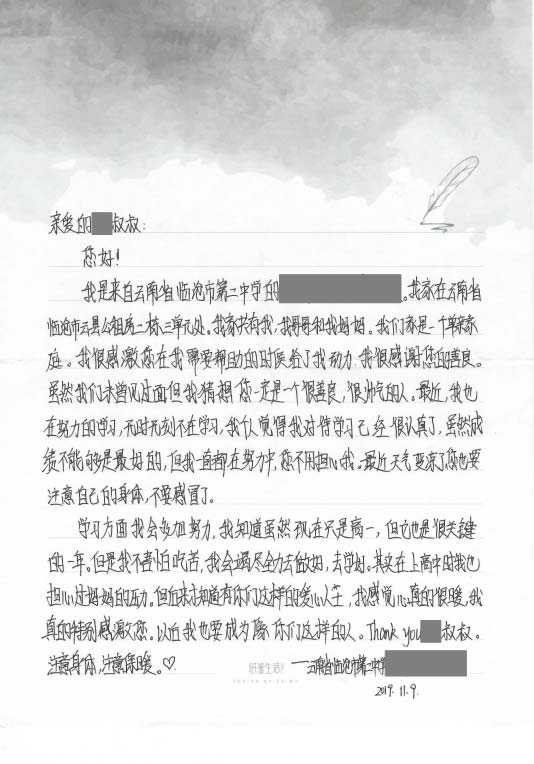 亲爱的 叔叔：
您好！
我是来自云南省临沧市第二中学的 。我家在云南省
临沧市云县公租房二栋三单元处。我家共有我，我哥哥和我妈妈。我们家是一个单亲家
庭。我很感激您在我需要帮助的时候给了我动力，我很感谢您的善良。
虽然我们未曾见过面但我猜想您一定是一个很善良，很帅气的人。最近，我也
在努力的学习，无时无刻不在学习，我认觉得我对待学习已经很认真了，虽然成
绩不能够是最好的，但我一直都在努力中，您不用担心我。最近天气变凉了您也要
注意自己的身体，不要感冒了。
学习方面我会多加努力，我知道虽然现在只是高一，但它也是很关键
的一年。但是我不害怕吃苦，我会竭尽全力去做好，去学好。其实在上高中时我也
担心过妈妈的压力。但后来知道有你们这样的爱心人士，我感觉心真的很暖，我
真的特别感激您。以后我也要成为像你们这样的人。Thank you 叔叔。
注意身体，注意保暖。♡
——云南省临沧市第二中学
2019.11.9.
纸墨生活